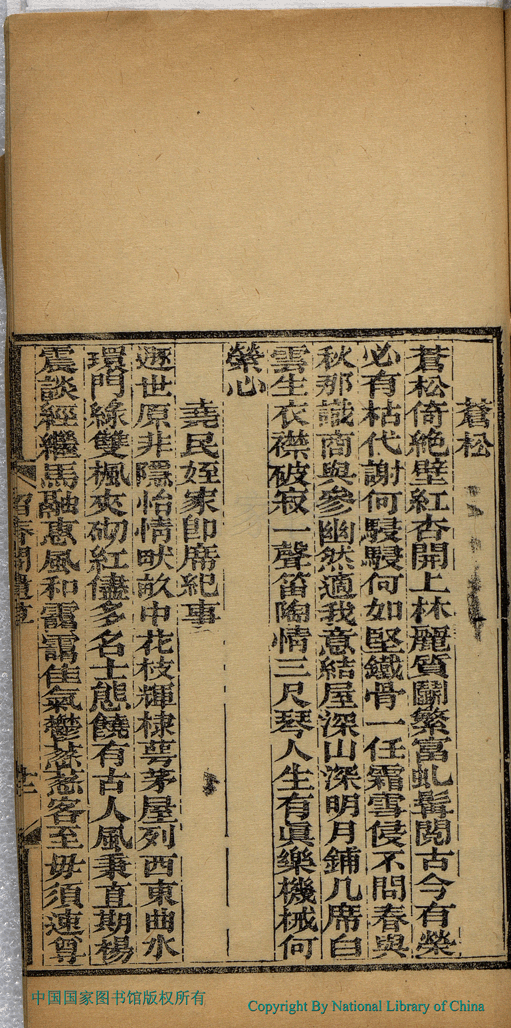 蒼松
蒼松倚絶壁紅杏開上林麗質鬭繁富虬髯閱古今有榮
必有枯代謝何駸駸何如堅鐵骨一任霜雪侵不問春與
秋那識商與參幽然適我意結屋深山深明月鋪几席白
雲生衣襟破寂一聲笛陶情三尺琴人生有眞樂機械何
縈心
堯民姪家卽席紀事
遯世原非隱怡情畎畝中花枝輝棣萼茅屋列西東曲水
環門綠雙楓夾砌紅儘多名士態饒有古人風秉直期楊
震談經繼馬融惠風和靄靄佳氣鬱葱葱客至毋須速尊
春閣
廿一
中国国家图书馆版权所有
Copyright By National Library of China